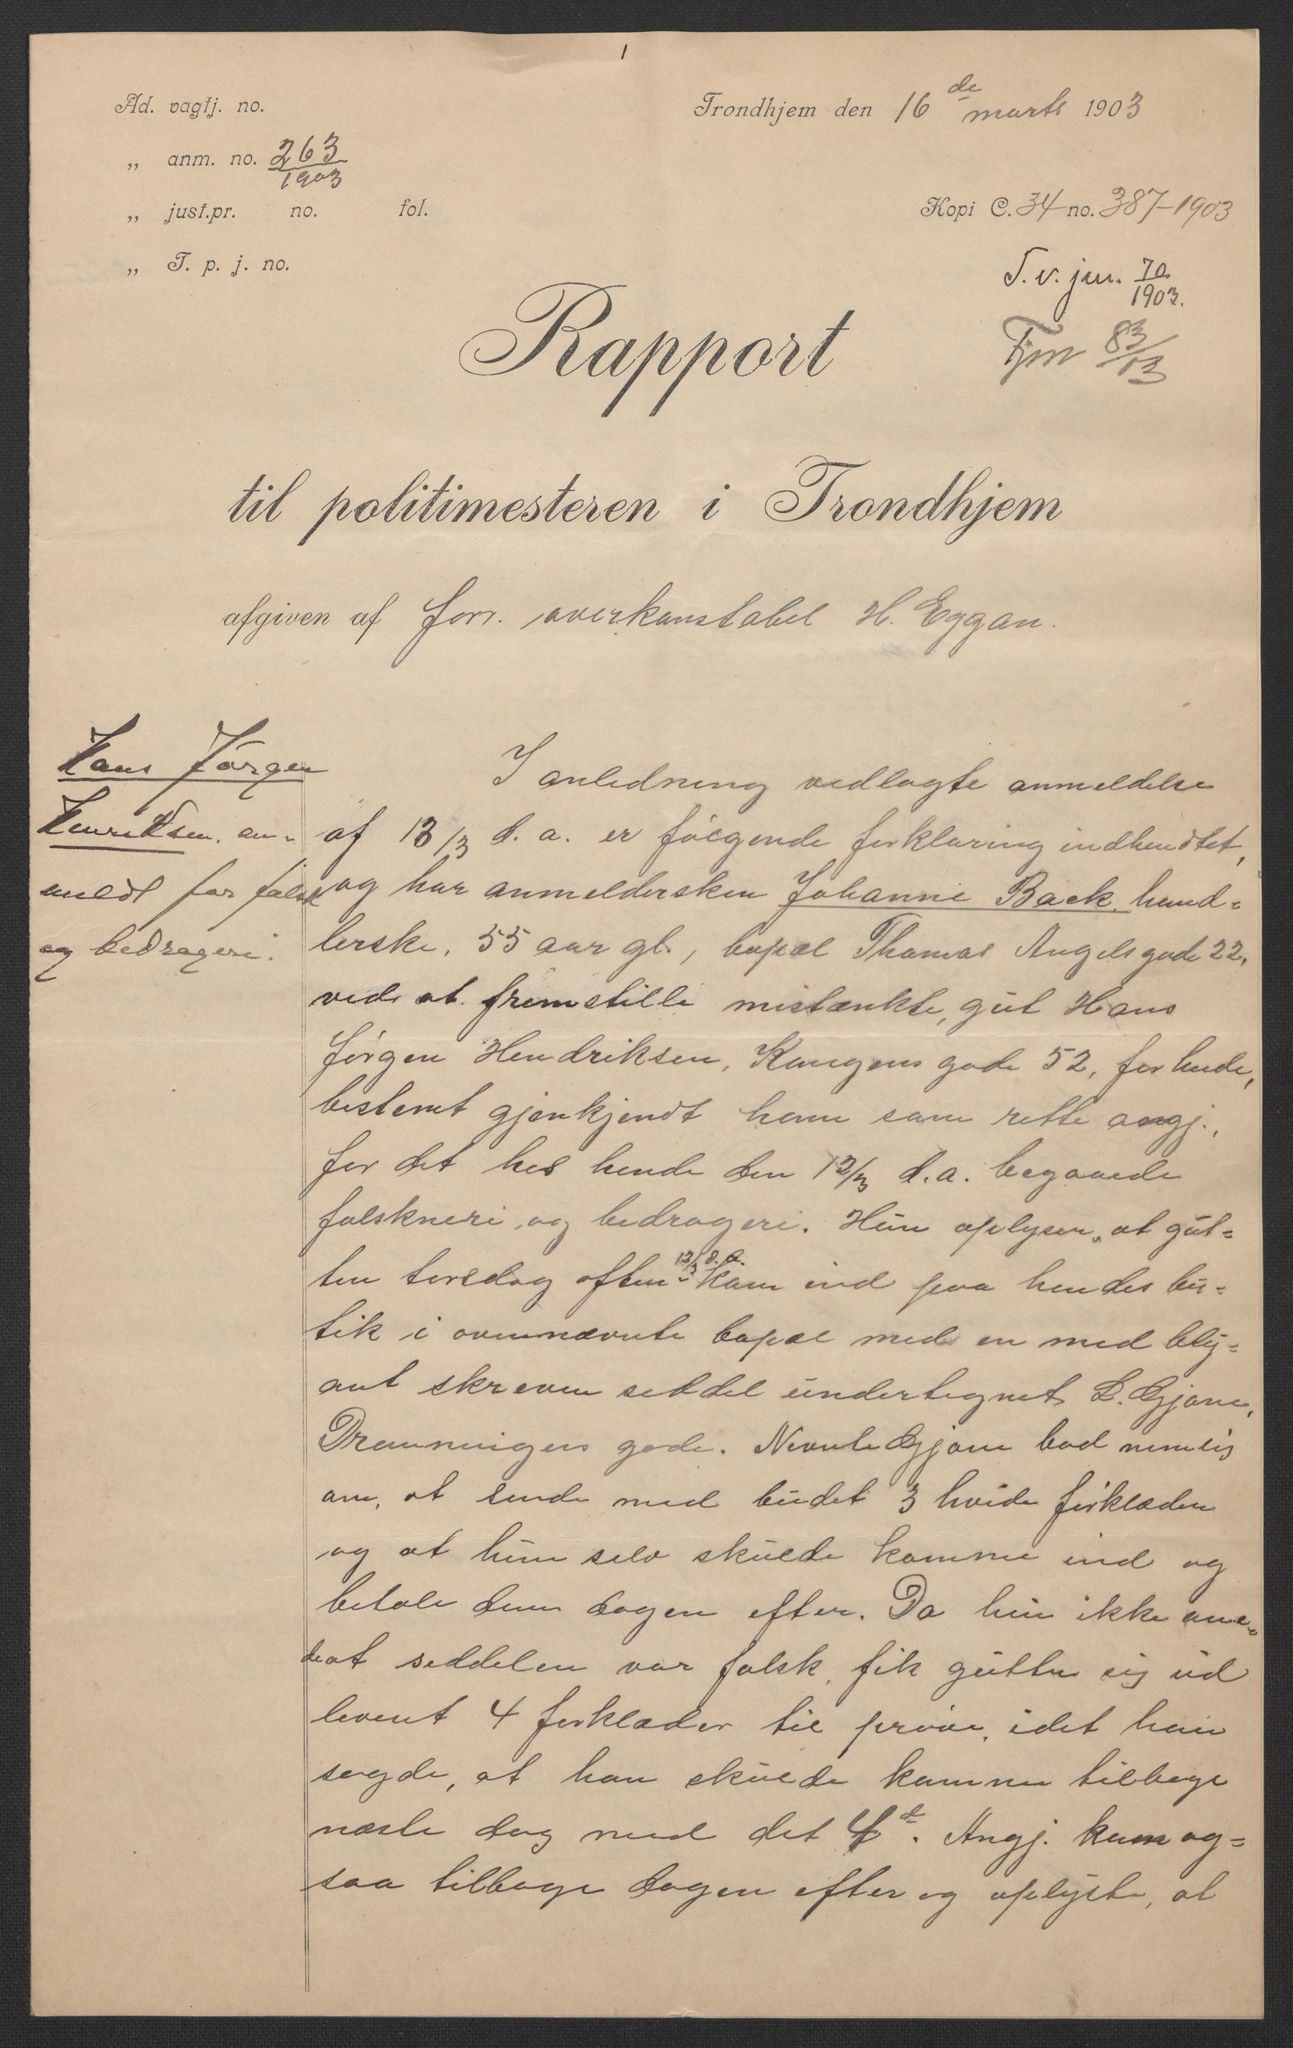 1
Ad. vagtj. no.
Trondhjem den 16de marts 1903
„ anm. no. 263/1903
„ just.pr. no. fol.
Kopi C. 34 no. 387-1903
„ T. p. j. no.
T. v. jur. 70/1903.
83/03
Rapport
til politimesteren i Trondhjem
afgiven af forr. overkonstabel H. Eggan.
Hans Jørgen
Henriksen. an-
meldt for falsk
og bedrageri.
I anledning vedlagte anmeldelse
af 13/3 d. a. er følgende forklaring indhendtet,
og har anmeldersken Johanne Back. hand-
lerske, 55 aar gl., bopæl Thomas Angels gade 22,
ved at fremstille mistænkte, gut Hans
Jørgen Hendriksen, Kongens gade 52, for hende,
bestemt gjenkjendt ham som rette angj.,
for det hos hende den 12/3 d.a. begaaede
falskneri og bedrageri. Hun oplyser, at gut-
ten torsdag aften 12/3 d.a. kom ind paa hendes bu-
tik i ovennævnte bopæl med en med bly-
ant skreven seddel undertegnet L. Gjone,
Dronningens gade. Nevnte Gjone bad nemlig
om, at sende med budet 3 hvide forklæder
og at hun selv skulde komme ind og
betale dem dagen efter. Da hun ikke ane-
de at seddelen var falsk, fik gutten sig ud
levert 4 forklæder til prøve, idet han
sagde, at han skulde komme tilbage
næste dag med det 4de. Angj. kom og-
saa tilbage dagen efter og oplyste, at